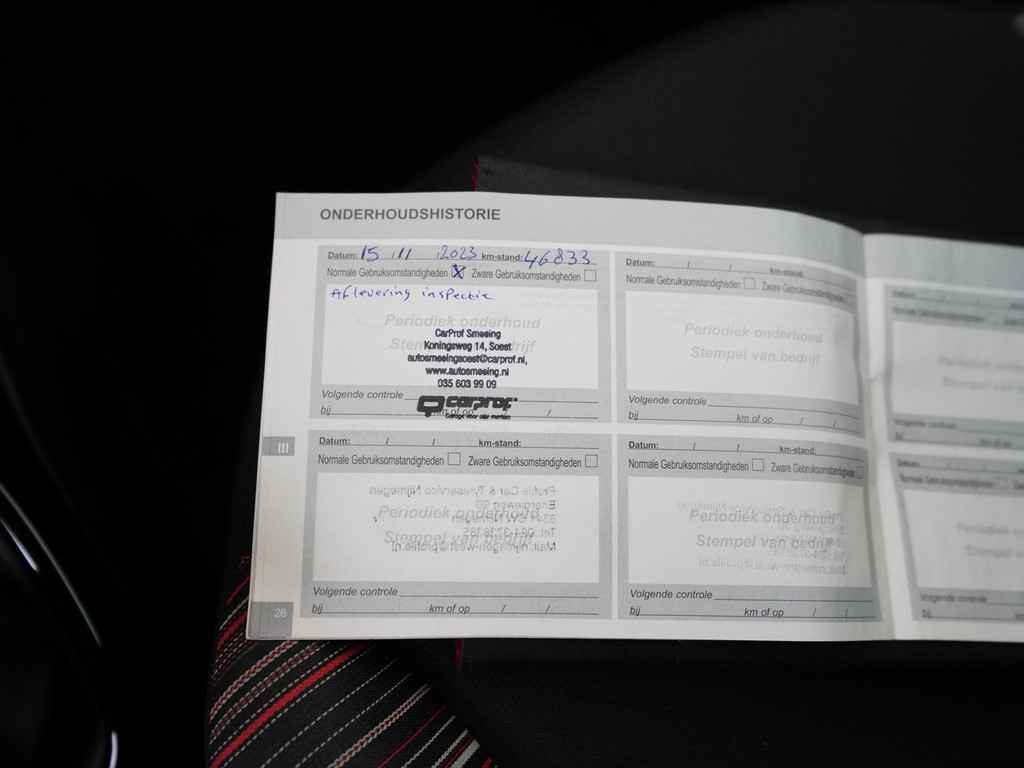 ONDERHOUDSHISTORIE
Datum: 15 / 11 / 2023 km-stand: 46833
Normale Gebruiksomstandigheden X Zware Gebruiksomstandigheden
Aflevering inspectie
Periodiek onderhoud
Stempel van bedrijf
CarProf Smeeing
Koningsweg 14, Soest
autosmeeingsoest@carprof.nl,
www.autosmeeing.nl
035 603 99 09
Volgende controle
bij km of op /
carprof
Garage voor alle merken
Datum: / / km-stand:
Normale Gebruiksomstandigheden Zware Gebruiksomstandigheden
Periodiek onderhoud
Stempel van bedrijf
Volgende controle
bij km of op / /
III
Datum: / / km-stand:
Normale Gebruiksomstandigheden Zware Gebruiksomstandigheden
Periodiek onderhoud
Stempel van bedrijf
Volgende controle
bij km of op / /
Datum: / / km-stand:
Normale Gebruiksomstandigheden Zware Gebruiksomstandigheden
Periodiek onderhoud
Stempel van bedrijf
Volgende controle
bij km of op / /
26